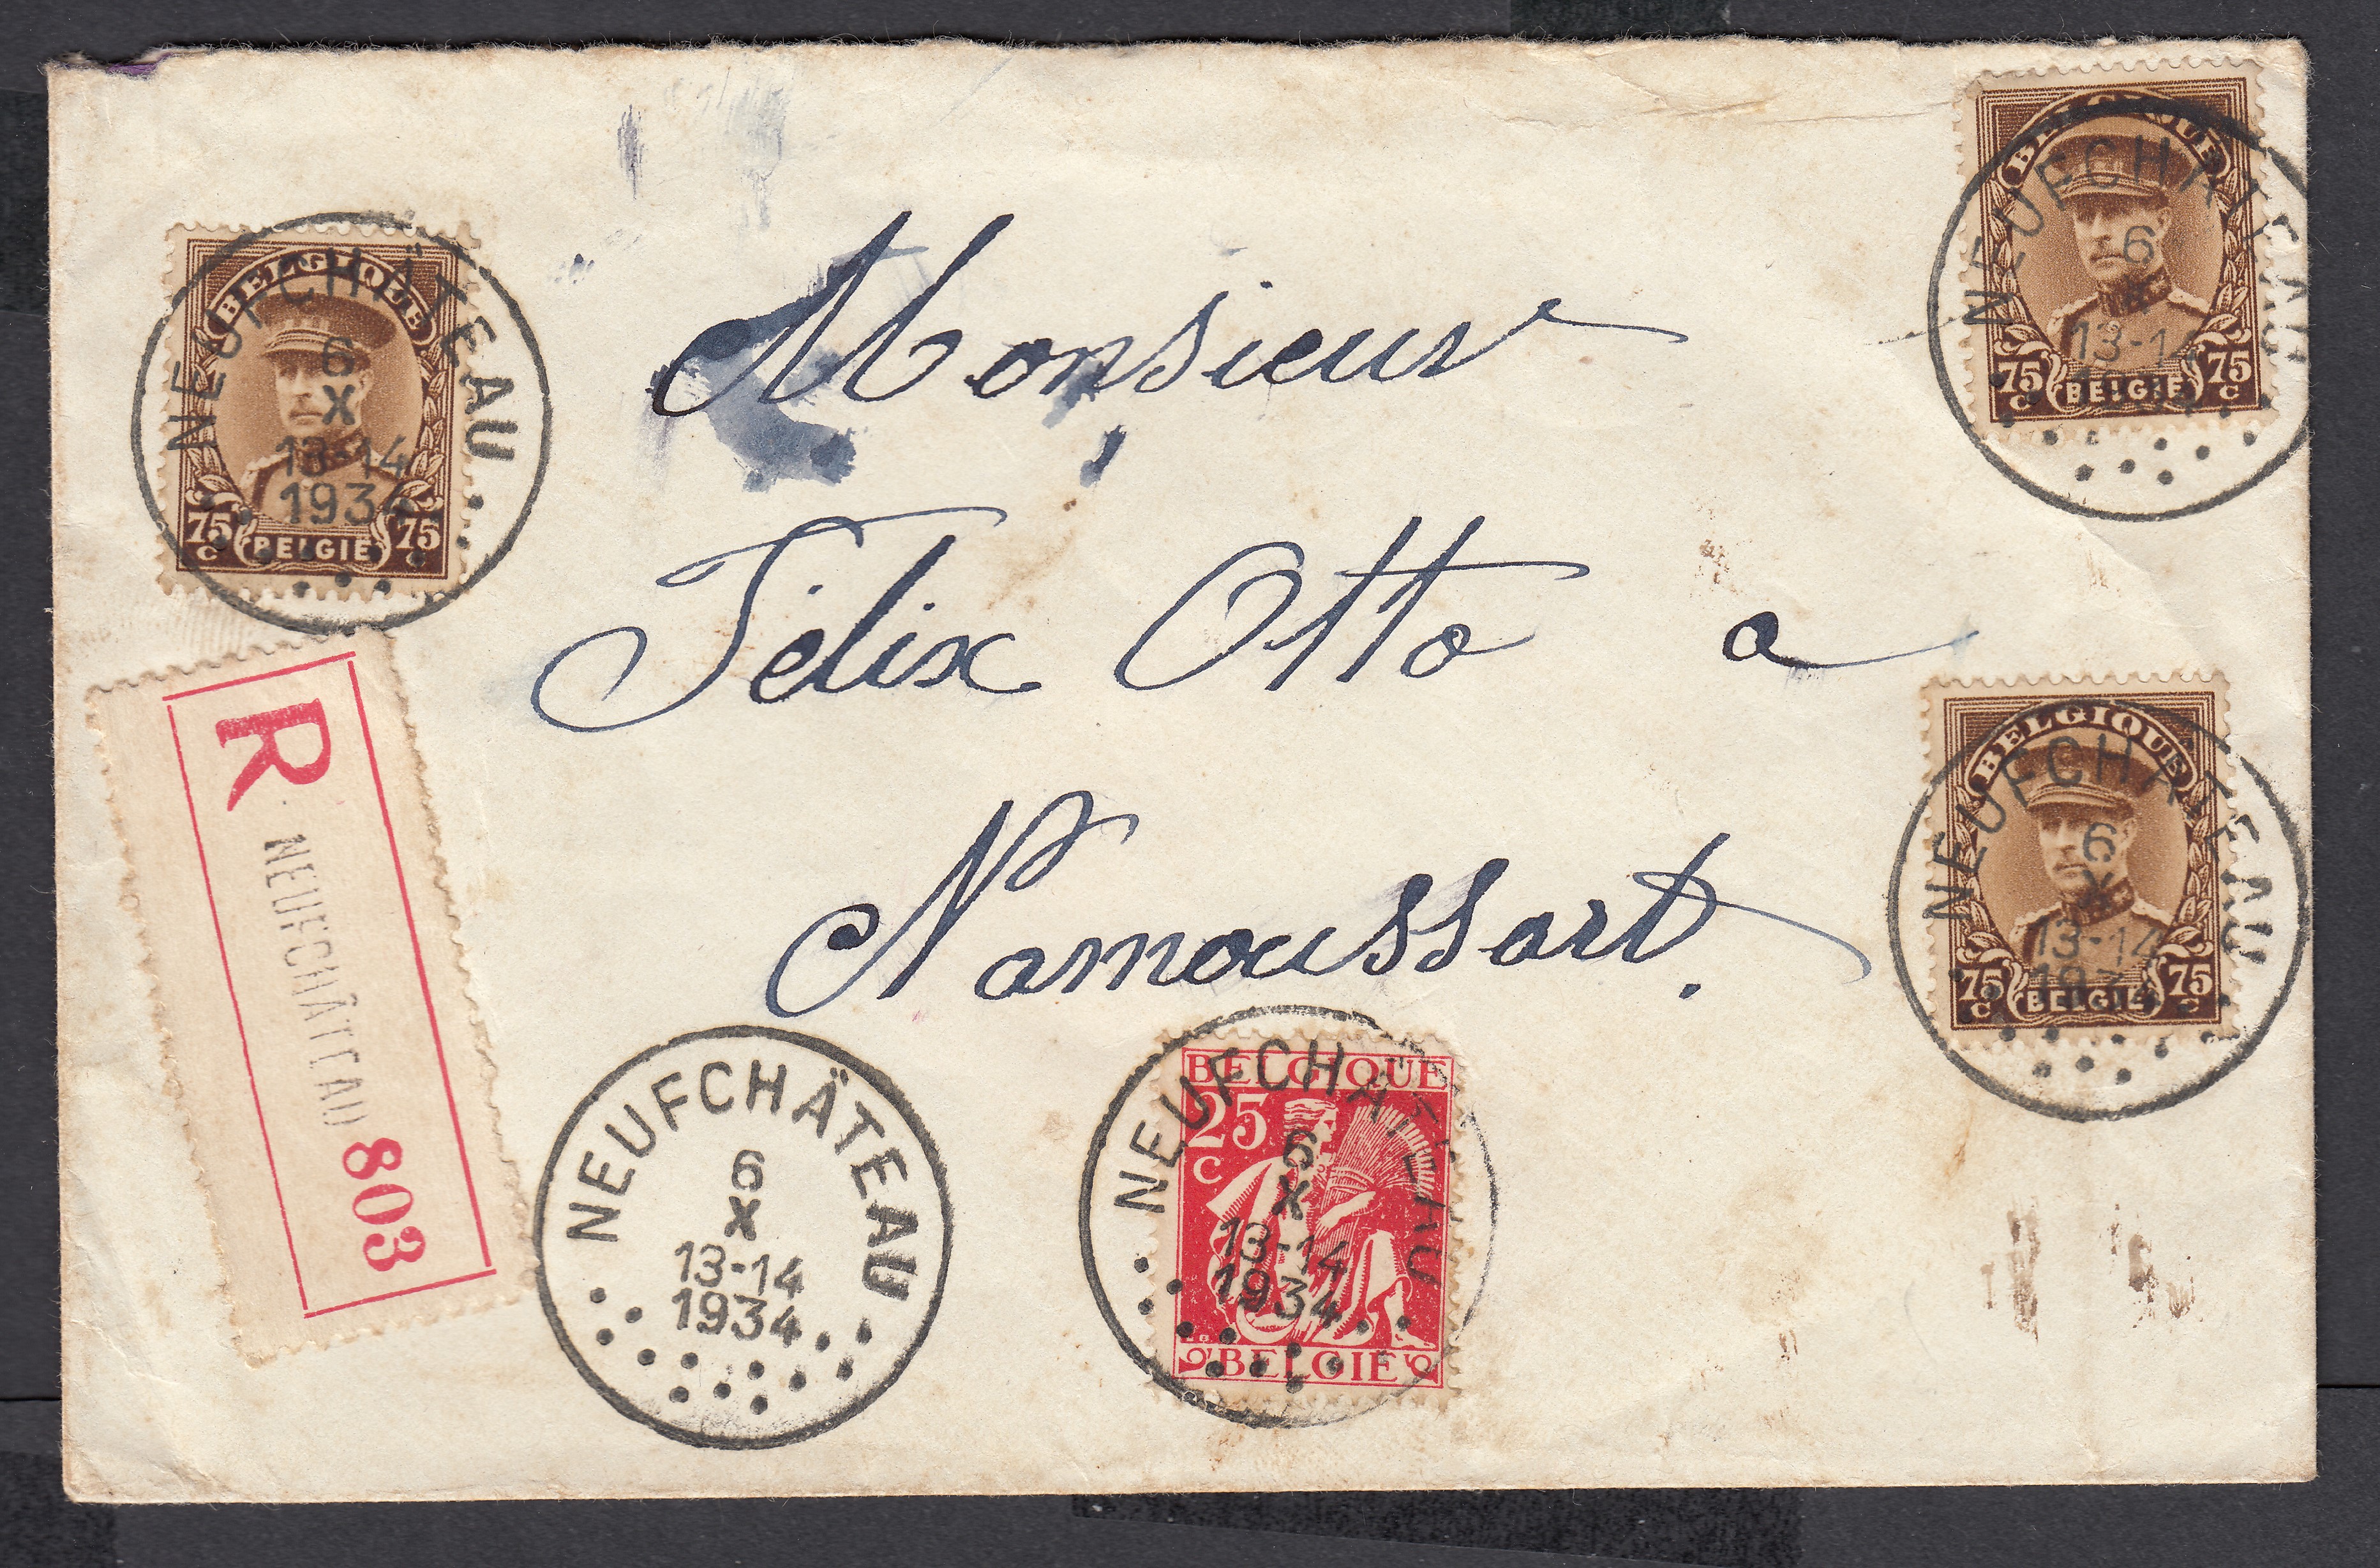 BELGIQUE
75 c BELGIË 75 c
NEUFCHÂTEAU
6
X
13-14
1934
BELGIQUE
75 c BELGIË 75 c
NEUFCHÂTEAU
6
X
13-14
Monsieur
Félix Otto a
Namoussart.
R
NEUFCHÂTEAU
803
BELGIQUE
75 c BELGIË 75 c
NEUFCHÂTEAU
6
X
13-14
1934
NEUFCHÂTEAU
6
X
13-14
1934
BELGIQUE
25
c
BELGIË
NEUFCHÂTEAU
6
X
13-14
1934